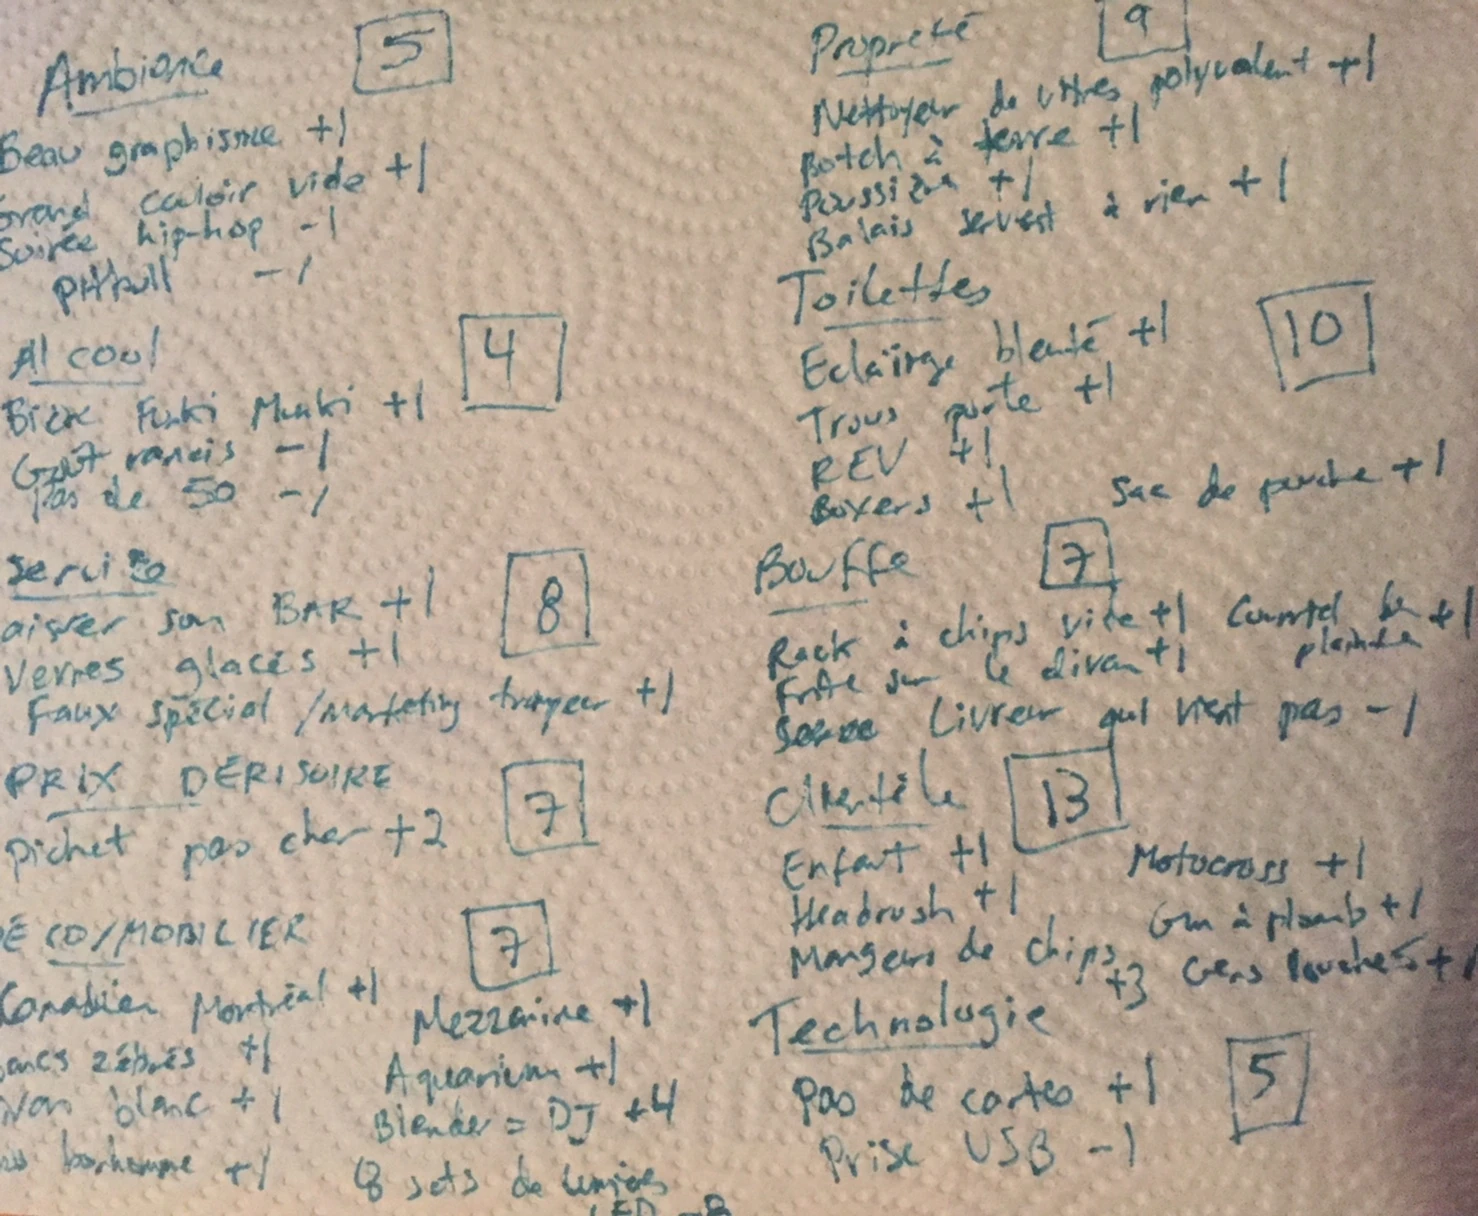 Ambiance 5
Beau graphisme +1
Grand couloir vide +1
Soirée hip-hop -1
Pitbull -1
Alcool 4
Bière Funki Munki +1
Goût rancis -1
Pas de 50 -1
Service 8
aisser son BAR +1
Verres glacés +1
Faux spécial / marketing trompeur +1
PRIX DÉRISOIRE 7
Pichet pas cher +2
ÉCO/MOBILIER 7
Canadien Montréal +1
ancs zébrés +1
ivan blanc +1
bonhomme +1
Mezzanine +1
Aquarium +1
Blender = DJ +4
8 sets de lumières
LED -8
Propreté 9
Nettoyeur de vitres polyvalent +1
Botch à terre +1
Poussière +1
Balais servent à rien +1
Toilettes 10
Eclairage bleuté +1
Trous porte +1
REV +1
Boxers +1
Sac de perche +1
Bouffe 7
Rack à chips vide +1
Frite sur le divan +1
Livreur qui vient pas -1
plainte +1
Clientèle 13
Enfant +1
Headrush +1
Mangeurs de chips +3
Motocross +1
Gun à plomb +1
Gens louches +1
Technologie 5
Pas de cartes +1
Prise USB -1